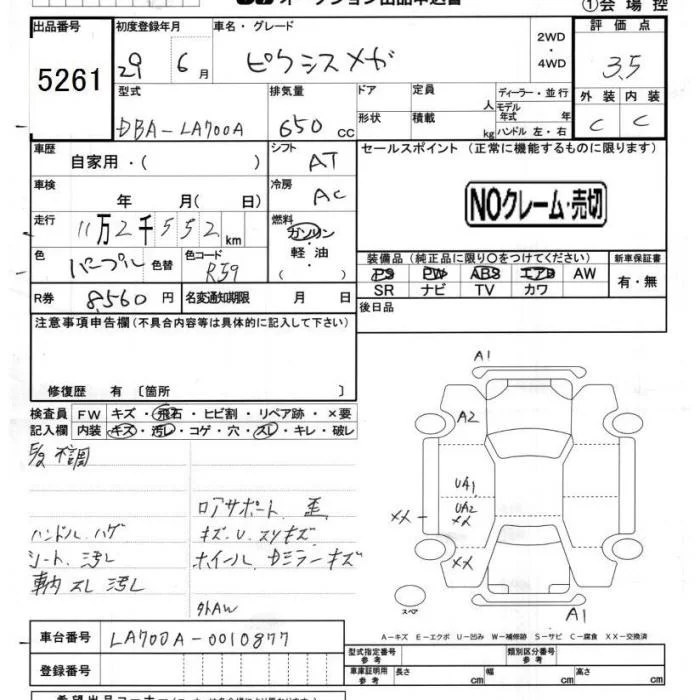 ①会場控
出品番号
5261
初度登録年月
29 6月
車名・グレード
ピクシスメガ
2WD
・
4WD
評価点
3.5
型式
DBA-LA700A
排気量
650 cc
ドア
形状
定員 人
積載 kg
ディーラー・並行
モデル年式 年
ハンドル 左・右
外装 内装
C C
車歴
自家用・( )
シフト
AT
セールスポイント (正常に機能するものに限ります)
NOクレーム・売切
車検
年 月( 日)
冷房
AC
走行
11万2千552km
燃料
ガソリン
・
軽油
( )
色
パープル
色替
色コード
R59
装備品 (純正品に限り○をつけてください)
PS PW ABS エアB AW
SR ナビ TV カワ
新車保証書
有・無
R券
8,560 円
名変通知期限 月 日
後日品
注意事項申告欄 (不具合内容等は具体的に記入して下さい)
修復歴 有 〔箇所 〕
検査員
記入欄
FW キズ・飛石・ヒビ割・リペア跡・×要
内装 キズ・汚レ・コゲ・穴・スレ・キレ・破レ
不調
ロアサポート 歪
ハンドル ハゲ
キズ・U・スリキズ
シート 汚レ
ホイール、Dミラーキズ
車内 スレ 汚レ
外AW
A1
A2
UA1
UA2
XX
XX
XX
A1
スペア
A-キズ E-エクボ U-凹み W-補修跡 S-サビ C-腐食 XX-交換済
車台番号
LA700A-0010877
登録番号
型式指定番号
参考
類別区分番号
参考
車庫証明用
参考
長さ cm
幅 cm
高さ cm